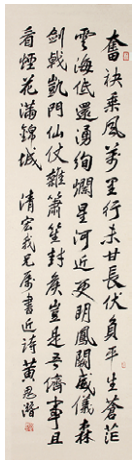 奮袂乘風萬里行未甘長伏負平生蒼茫
雲海低還湧絢爛星河近更明鳳闕威儀森
劍戟凱門仙仗雜簫笙封侯豈是吾儕事且
看煙花滿錦城
清宏我兄屬書近詩 黃君潛